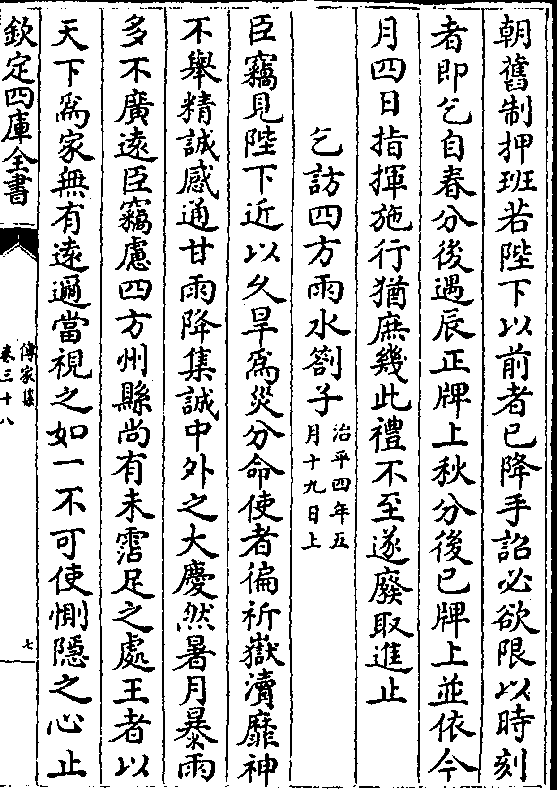 朝舊制押班若陛下以前者已降手詔必欲限以時刻
者即乞自春分後遇辰正牌上秋分後巳牌上並依今
月四日指揮施行猶庶幾此禮不至遂廢取進止
乞訪四方雨水劄子治平四年五
月十九日上
臣竊見陛下近以久旱為災分命使者徧祈嶽瀆靡神
不舉精誠感通甘雨降集誠中外之大慶然暑月暴雨
多不廣遠臣竊慮四方州縣尚有未霑足之處王者以
天下為家無有遠邇當視之如一不可使惻隱之心止
欽定四庫全書
傳家集
卷三十八
七